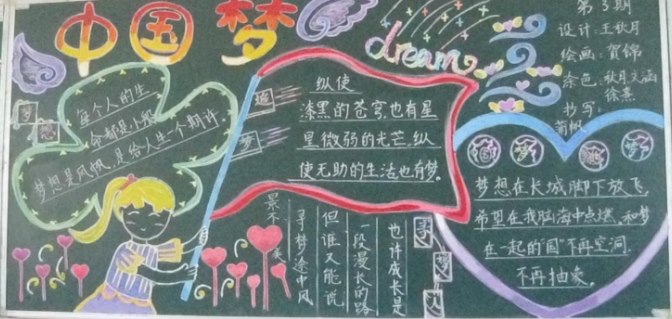 中国梦
dream
第3期
设计:王秋月
绘画:贺锦
涂色:秋月文涵
徐熹
抄写:
菊帆
每个人的生
命都是小船
梦想是风帆,是给人生一个期许
追
梦
纵使
漆黑的苍穹,也有星
星微弱的光芒,纵
使无助的生活也有梦。
也许成长是
一段漫长的路
但谁又能说
寻梦途中风
景不美
寻
梦
人
梦想在长城脚下放飞,
希望在我脑海中点燃,和梦
在一起的国"不再空洞
不再抽象。